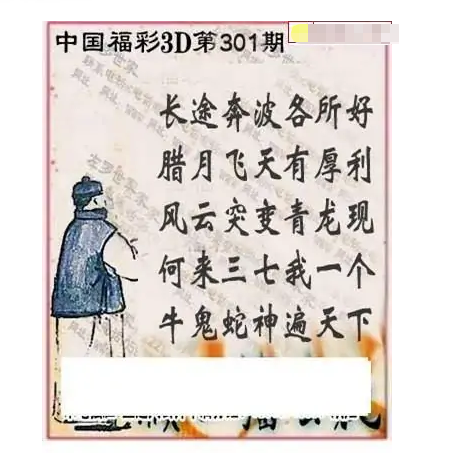 中国福彩3D第301期
长途奔波各所好
腊月飞天有厚利
风云突变青龙现
何来三七我一个
牛鬼蛇神遍天下